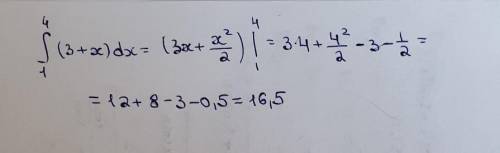 ∫₁⁴ (3+x)dx = (3x + x²/2) |₁⁴ = 3·4 + 4²/2 - 3 - 1/2 =
= 12 + 8 - 3 - 0,5 = 16,5